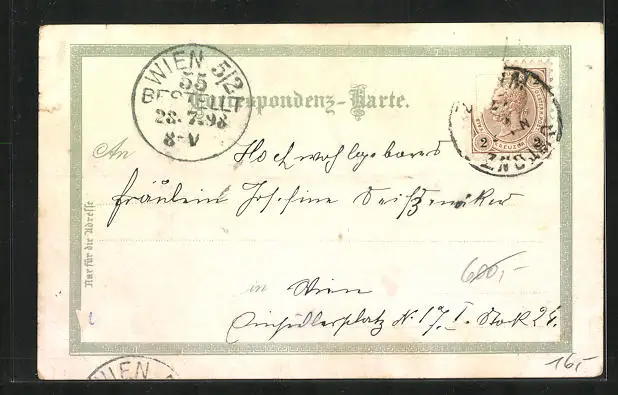 WIEN 5/2
55
BESTELLT
28.7.98
8-V
Correspondenz-Karte.
2 KREUZER 2
An
Hochwohlgeboren
Fräulein Josefine
in Wien
Einsiedlerplatz N. 17, I. Stock 24.
Nur für die Adresse
600,-
16,-
WIEN